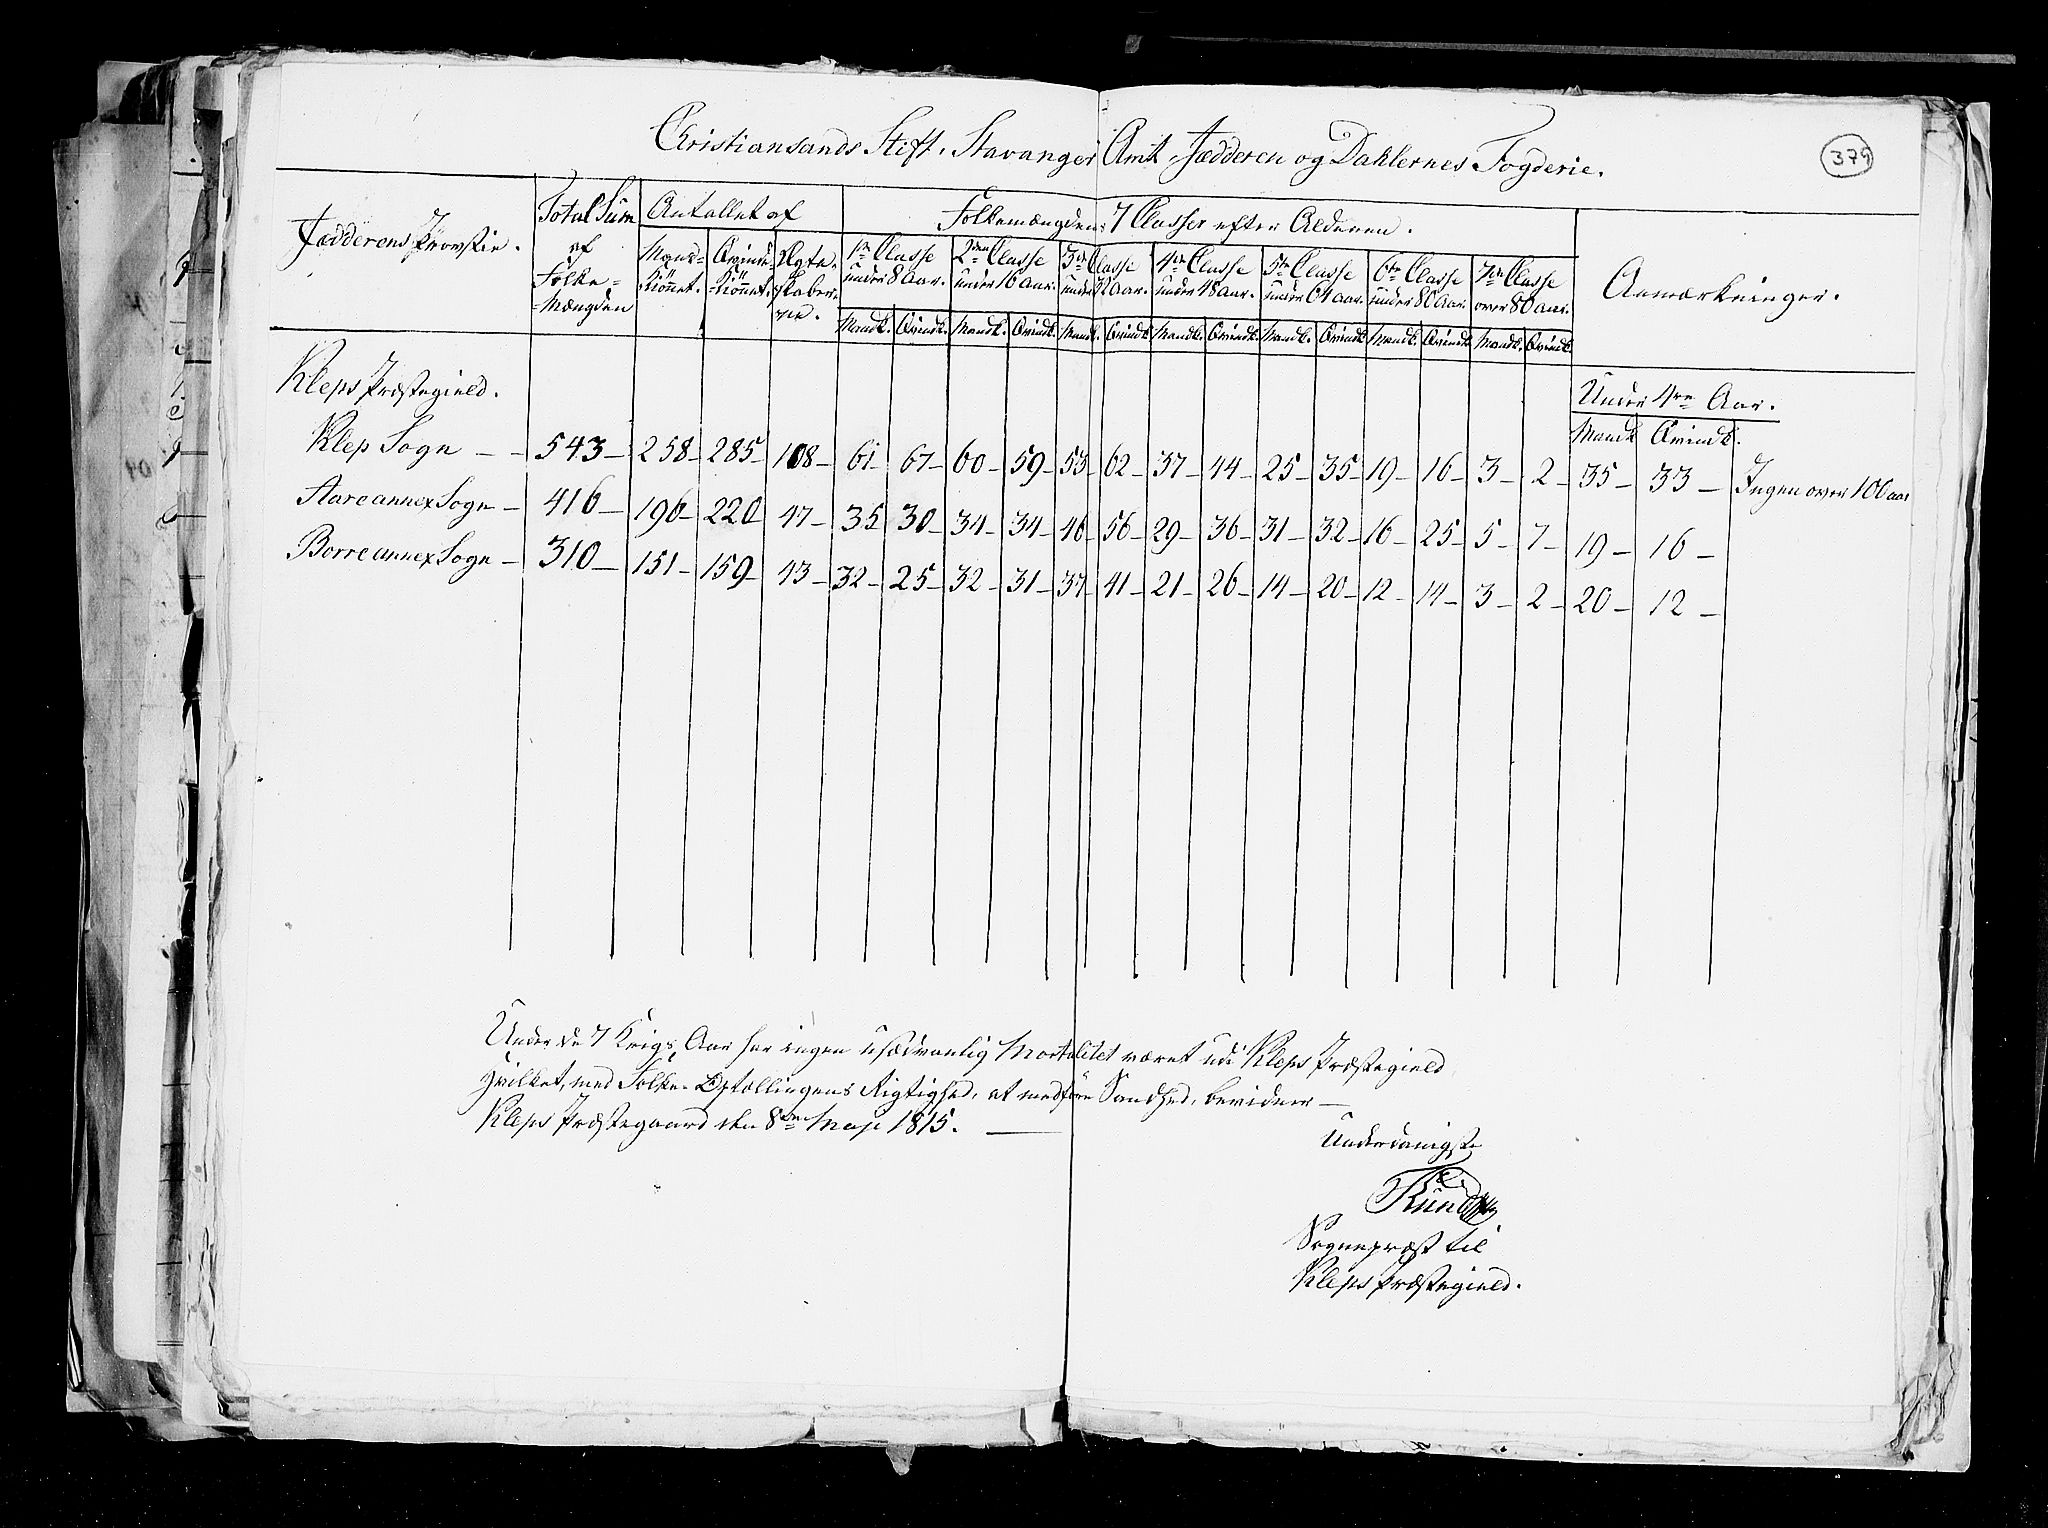 Christiansands Stift, Stavanger Amt, Jædderen og Dahlernes Fogderie.
379
Jædderens Provstie.
Total Sum af Folke-Mængden
Antallet af
Folkemængden i 7 Classer efter Alderen.
Anmærkninger.
Mand-Kiönnet. Qvinde-Kiönnet. Ægteskaberne.
1ste Classe under 8 Aar. 2den Classe under 16 aar. 3die Classe under 32 aar. 4de Classe under 48 aar. 5te Classe under 64 aar. 6te Classe under 80 aar. 7de Classe over 80 aar.
Mandk. Qvindk. Mandk. Qvindk. Mandk. Qvindk. Mandk. Qvindk. Mandk. Qvindk. Mandk. Qvindk. Mandk. Qvindk.
Kleps Præstegield.
Under 4re Aar.
Mandk. Qvindk.
Klep Sogn — 543 — 258 — 285 — 108 — 61 — 67 — 60 — 59 — 53 — 62 — 37 — 44 — 25 — 35 — 19 — 16 — 3 — 2 — 35 — 33 — Ingen over 100 aar
Aare annex Sogn — 416 — 196 — 220 47 — 35 30 — 34 — 34 — 46 — 56 — 29 — 36 — 31 — 32 — 16 — 25 — 5 — 7 — 19 — 16 —
Borre annex Sogn — 310 — 151 — 159 — 43 — 32 — 25 — 32 — 31 — 37 — 41 — 21 — 26 — 14 — 20 — 12 — 14 — 3 — 2 — 20 — 12 —
Under de 7 Krigs Aar har ingen usædvanlig Mortalitet været udi Kleps Præstegield
Hvilket, med Folke-Optællingens Rigtighed, at medføre Sandhed, bevidner —
Kleps Præstegaard den 8de Maji 1815. —
Underdanigst
Sognepræst til
Kleps Præstegield.